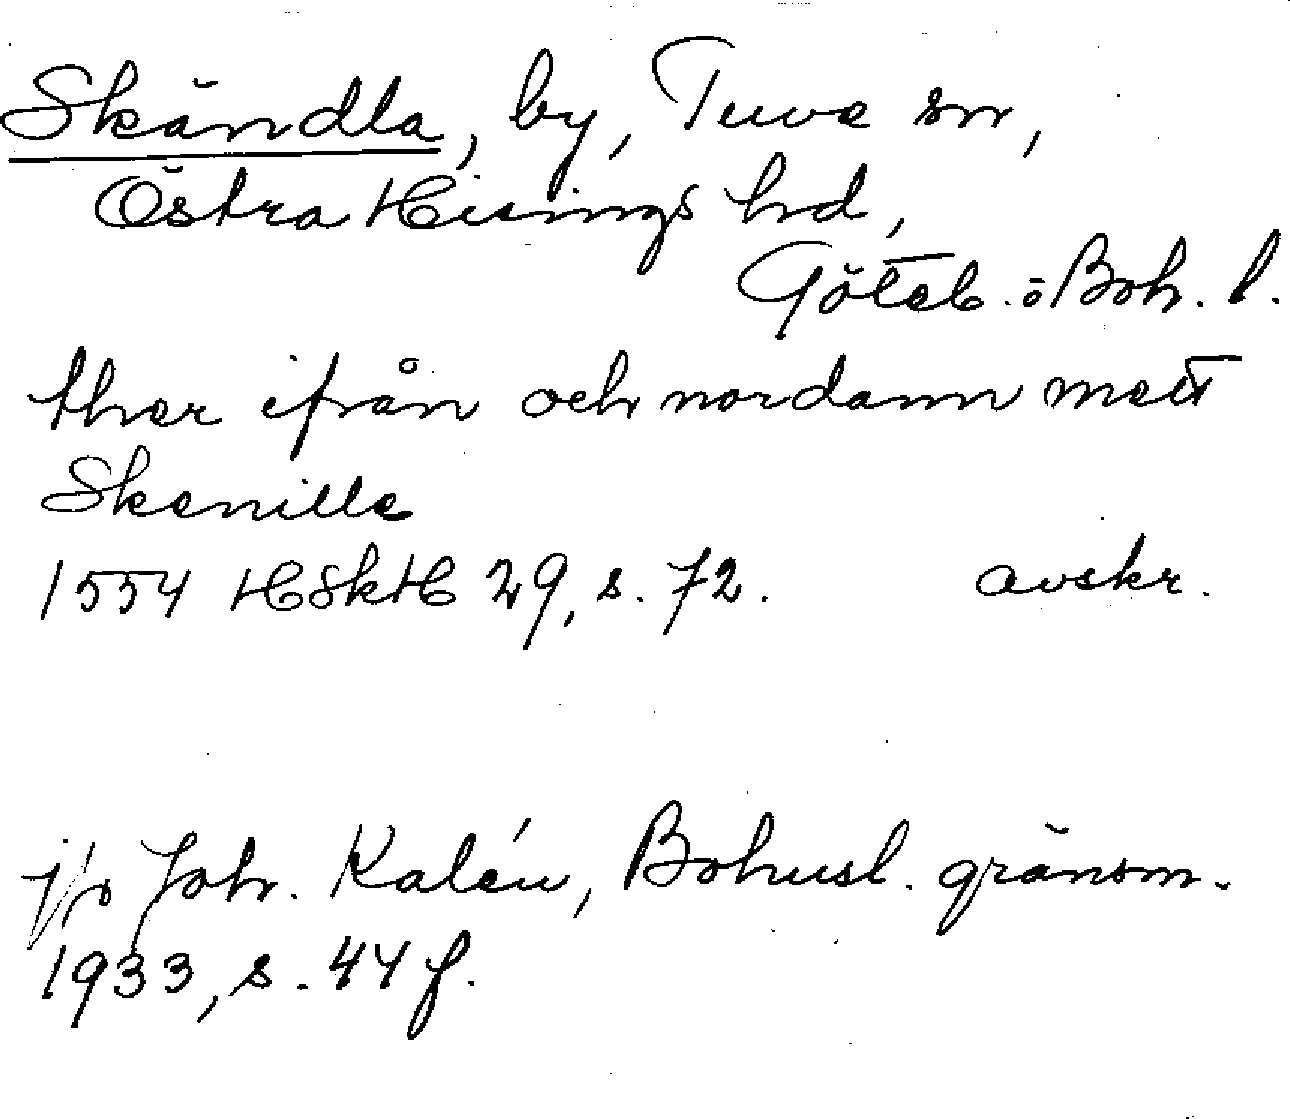 Skändla, by, Tuve sn,
Östra Hisings hd,
Göteb. o Boh. l.
ther ifrån och nordann mett
Skenille
1554 HSkH 29, s. 72. avskr.
Joh. Kalén, Bohusl. gränsm.
1933, s. 44 f.